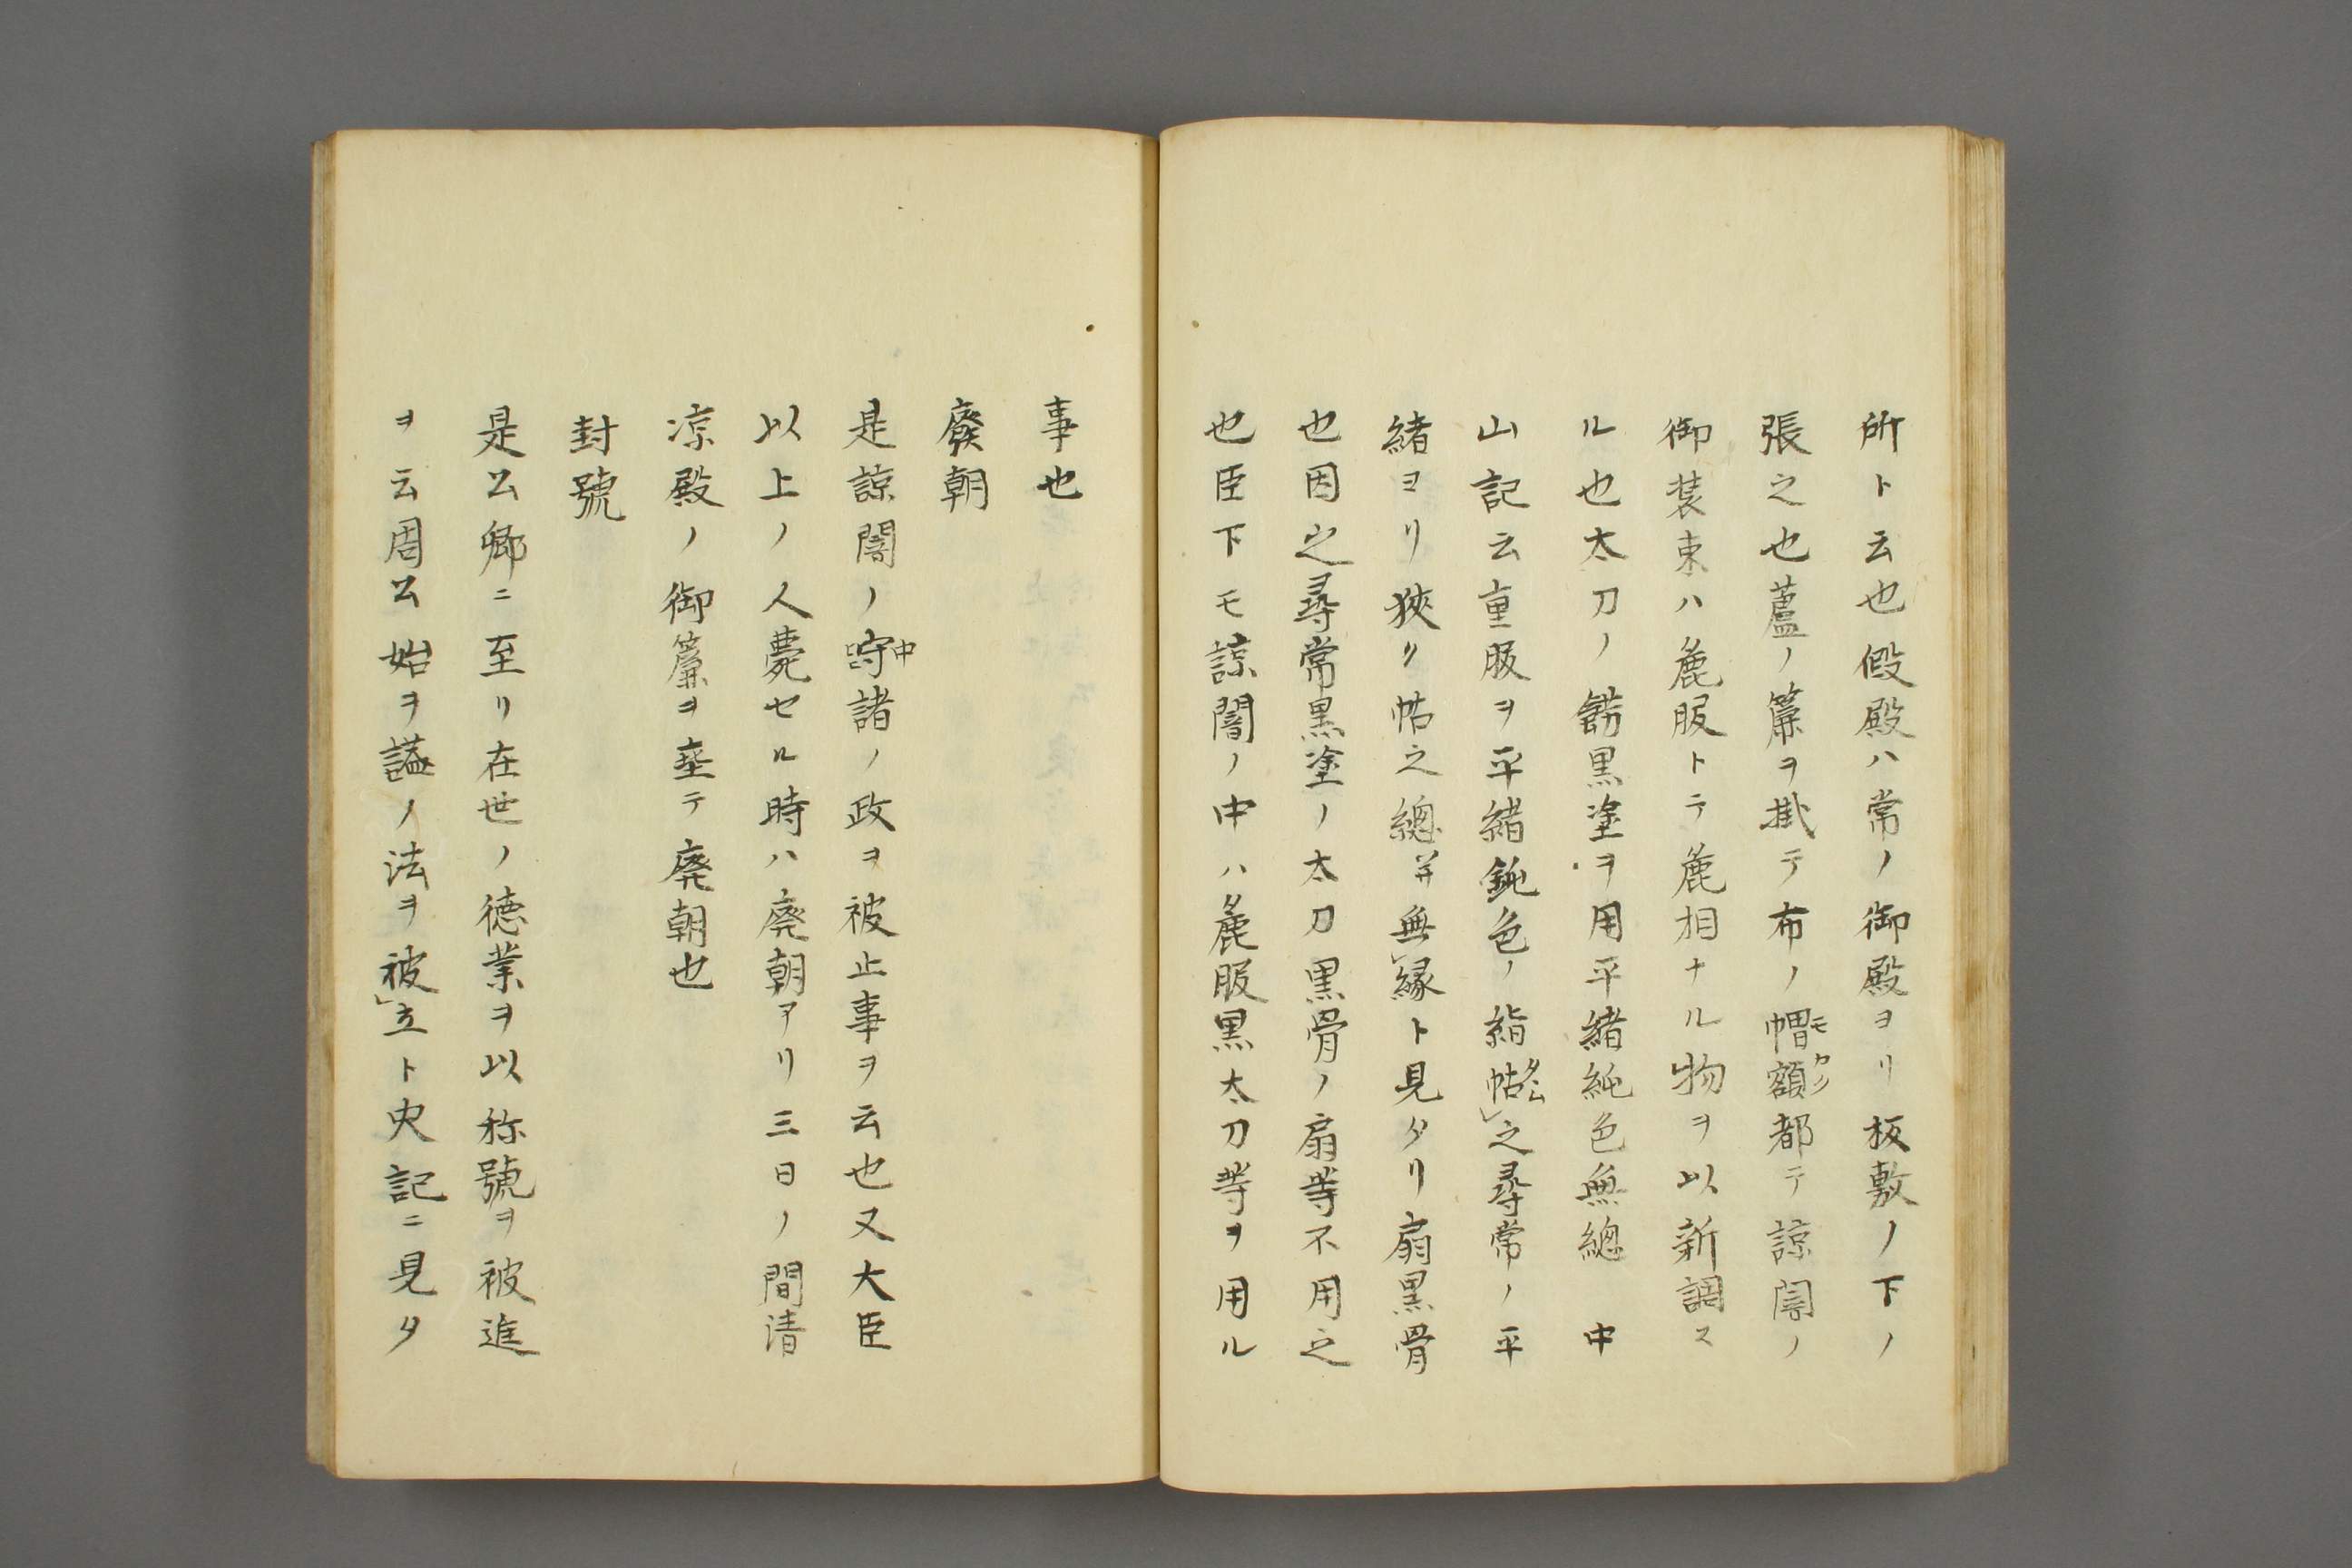 所ト云也假殿ハ常ノ御殿ヨリ板敷ノ下ノ
張之也蘆ノ簾ヲ掛テ布ノ帽額モカウノ都テ諒闇ノ
御装束ハ麁服トテ麁相ナル物ヲ以新調ス
ル也太刀ノ餝黒塗ヲ用平緒純色無總 中
山記云重服ヲ平緒鈍色ノ絹帖タヽム之尋常ノ平
緒ヨリ狹ク帖之總并無縁ト見タリ扇黒骨
也因之尋常黒塗ノ太刀黒骨ノ扇等不用之
也臣下モ諒闇ノ中ハ麁服黒太刀等ヲ用ル
事也
廢朝
是諒闇ノ中諸ノ政ヲ被止事ヲ云也又大臣
以上ノ人薨セル時ハ廃朝アリ三日ノ間清
凉殿ノ御簾ヲ垂テ廃朝也
封號
是公卿ニ至リ在世ノ徳業ヲ以称號ヲ被進
ヲ云周公始ヲ謚ノ法ヲ被立ト史記ニ見タ